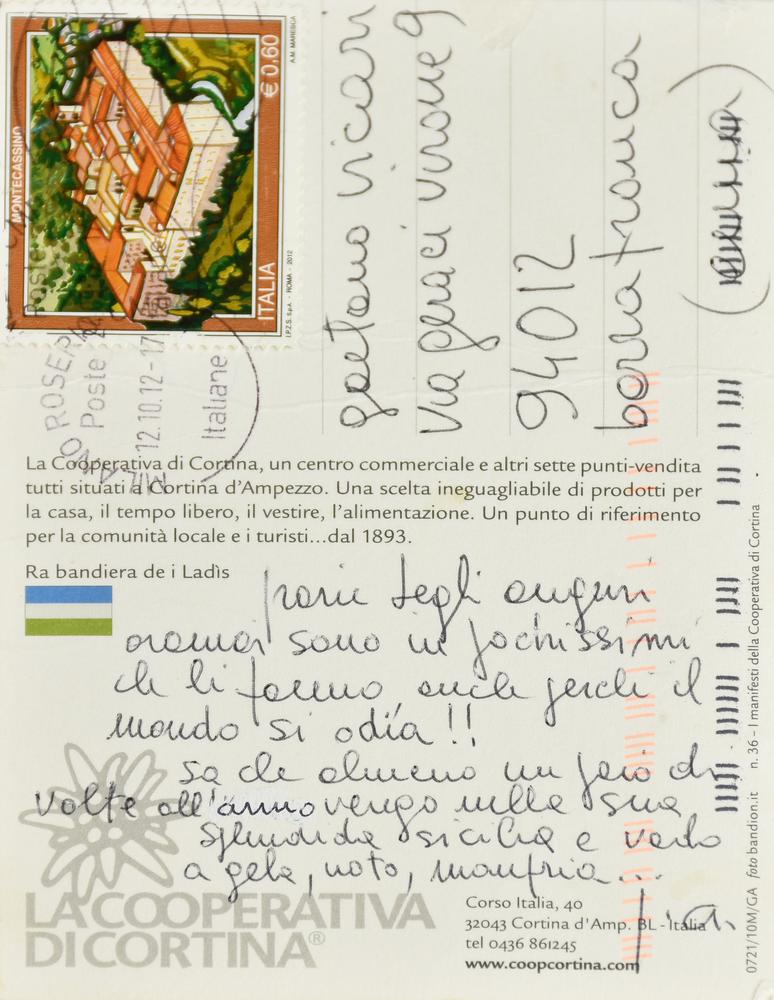 MONTECASSINO
€ 0,60
ITALIA
A.M. MARESCA
I.P.Z.S. S.p.A. - ROMA - 2012
Poste
12.10.12-17
Italiane
MILANO ROSERIO
gaetano viciari
via geraci virone 9
94012
barrafranca
La Cooperativa di Cortina, un centro commerciale e altri sette punti-vendita
tutti situati a Cortina d'Ampezzo. Una scelta ineguagliabile di prodotti per
la casa, il tempo libero, il vestire, l'alimentazione. Un punto di riferimento
per la comunità locale e i turisti...dal 1893.
Ra bandiera de i Ladìs
grazie degli auguri
oramai sono in pochissimi
che li fanno, anche perchè il
mondo si odia!!
sa che almeno un paio di
volte all'anno vengo nella sua
splendida sicilia e vado
a gela, noto, manfria...
LA COOPERATIVA
DI CORTINA®
Corso Italia, 40
32043 Cortina d'Amp. BL - Italia
tel 0436 861245
www.coopcortina.com
0721/10M/GA foto bandion.it n. 36 - I manifesti della Cooperativa di Cortina